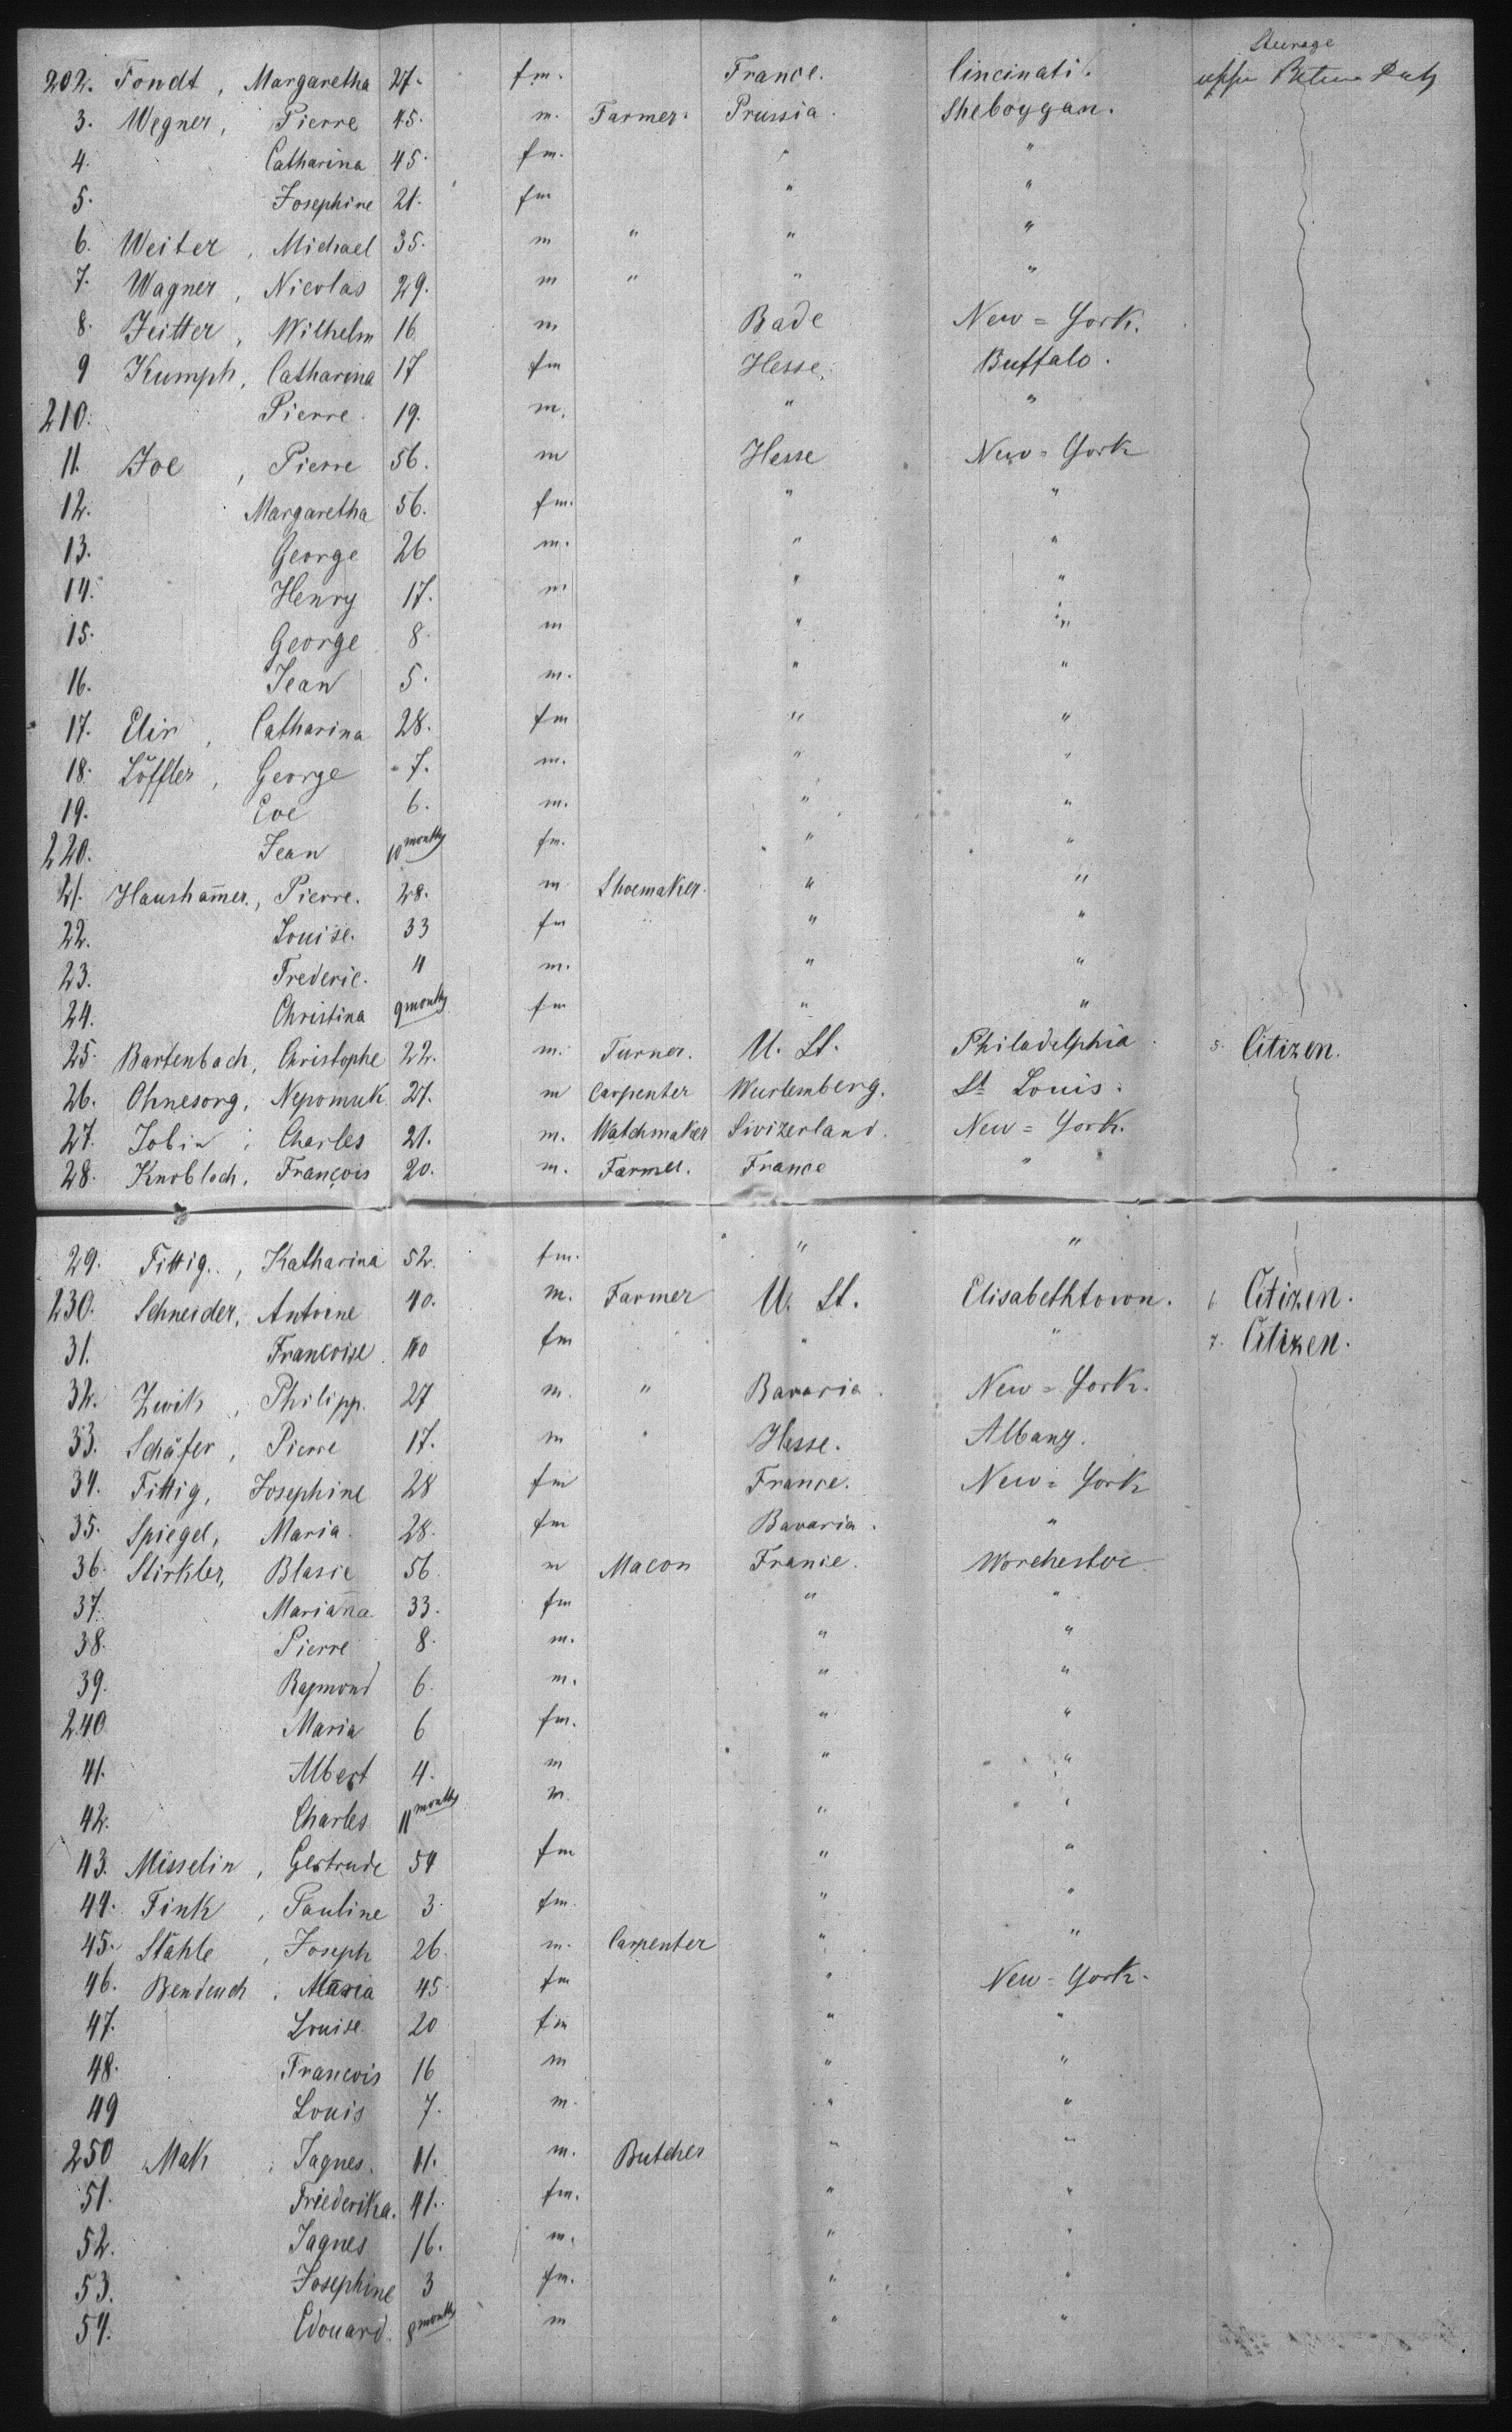 Steerage
202. Fondt, Margaretha 27. fm. France. Cincinati. upper Between
3. Wegner, Pierre 45. m. Farmer. Prussia. Sheboygan.
4. Catharina 45. fm. " "
5. Josephine 21. fm " "
6. Weiter, Michael 35. m " " "
7. Wagner, Nicolas 29. m " " "
8. Zeitter, Wilhelm 16 m Bade New=York.
9 Kumph, Catharina 17 fm Hesse. Buffalo.
210. Pierre. 19. m. " "
11. Zoe, Pierre 56. m Hesse New=York
12. Margaretha 56. fm. " "
13. George 26 m. " "
14. Henry 17. m " "
15. George 8. m " "
16. Jean 5. m. " "
17. Elir, Catharina 28. fm " "
18. Löffler, George 7. m. " "
19. Eve 6. m. " "
220. Jean 10 months fm. " "
21. Hausham̄er., Pierre. 28. m Shoemaker. " "
22. Louise. 33 fm " "
23. Frederic. 4 m. " "
24. Christina 9 months fm " "
25. Bartenbach, Christophe 22. m. Turner. U. St. Philadelphia 5. Citizen.
26. Ohnesorg, Nepomuk 27. m Carpenter Wurtemberg. St Louis.
27. Jobin, Charles 21. m. Watchmaker Swizerland. New=York.
28. Knobloch, François 20. m. Farmer. France "
29. Fittig., Katharina 52. fm. " "
230. Schneider, Antoine 40. m. Farmer U. St. Elisabethtown. 6 Citizen.
31. Francoise 40 fm " " 7. Citizen.
32. Zwik, Philipp. 27 m. " Bavaria. New=York.
33. Schäfer, Pierre 17. m " Hesse. Albany.
34. Fittig, Josephine 28 fm France. New=York
35. Spiegel, Maria. 28. fm Bavaria. "
36. Stirkler, Blasie 56 m Macon France. Worchester
37. Marianna 33. fm " "
38. Pierre 8. m. " "
39. Raymond 6. m. " "
240 Maria 6 fm. " "
41. Albert 4. m " "
42. Charles 11 months m. " "
43. Misselin, Gertrude 54 fm " "
44. Fink, Pauline 3. fm. " "
45. Stähle, Joseph 26. m. Carpenter " "
46. Bendeuch, Maria 45. fm " New=York.
47. Louise. 20 fm " "
48. Francois 16 m " "
49 Louis 7. m. " "
250 Mak, Jaques. 41. m. Butcher " "
51. Friederika. 41. fm. " "
52. Jaques 16. m. " "
53. Josephine 3 fm. " "
54. Edouard. 8 months m " "